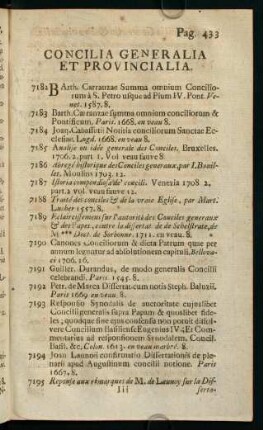 Pag. 433
CONCILIA GENERALIA
ET PROVINCIALIA.
7182 BArth. Carranzae Summa omnium Concilio-
rum à S. Petro usque ad Pium IV. Pont. Ve-
net. 1587. 8.
7183 Barth. Carranzae summa omnium conciliorum &
Pontificum. Paris. 1668. en veau 8.
7184 Joan. Cabassutii Notitia conciliorum Sanctae Ec-
clesiae. Lugd. 1668. en veau 8.
7185 Analise ou idée generale des Conciles. Bruxelles.
1706. 2. part 1. Vol veau fauve 8
7186 Abregé historique des Conciles generaux, par I. Bouil-
let. Moulins 1703. 12.
7187 Istoria compendiosa de' concili. Venezia 1708 2.
part. 2 vol. veau fauve 12.
7188 Traité des conciles & de la vraie Eglise, par Mart.
Luther 1557. 8.
7189 Eclaircissement sur l'autorité des Conciles generaux
& des Papes, contre la dissertat. de de Schelstrate, de
M*** Doct. de Sorbonne. 1711. en veau. 8.
7190 Canones Conciliorum & dicta Patrum quae per
annum leguntur ad absolutionem capituli. Bellova-
ci 1706. 16.
7191 Guilier. Durandus, de modo generalis Concilii
celebrandi. Paris. 1545. 8.
7192 Petr. de Marca Dissertat. cum notis Steph. Baluzii.
Paris 1669 en veau. 8.
7193 Responsio Synodalis de auctoritate cujuslibet
Concilii generalis supra Papam & quoslibet fide-
les, quodque sine ejus consensu non potuit dissol-
vere Concilium Basiliense Eugenius IV. Et Com-
mentarius ad responsionem Synodalem. Concil.
Basil. &c. Colon. 1613. en veau marbré. 8.
7194 Joan Launoii confirmatio Dissertationis de ple-
narii apud Augustinum concilii notione. Paris
1667. 8.
7195 Reponse aux remarques de M. de Launoy sur la Dis-
Iii serta-